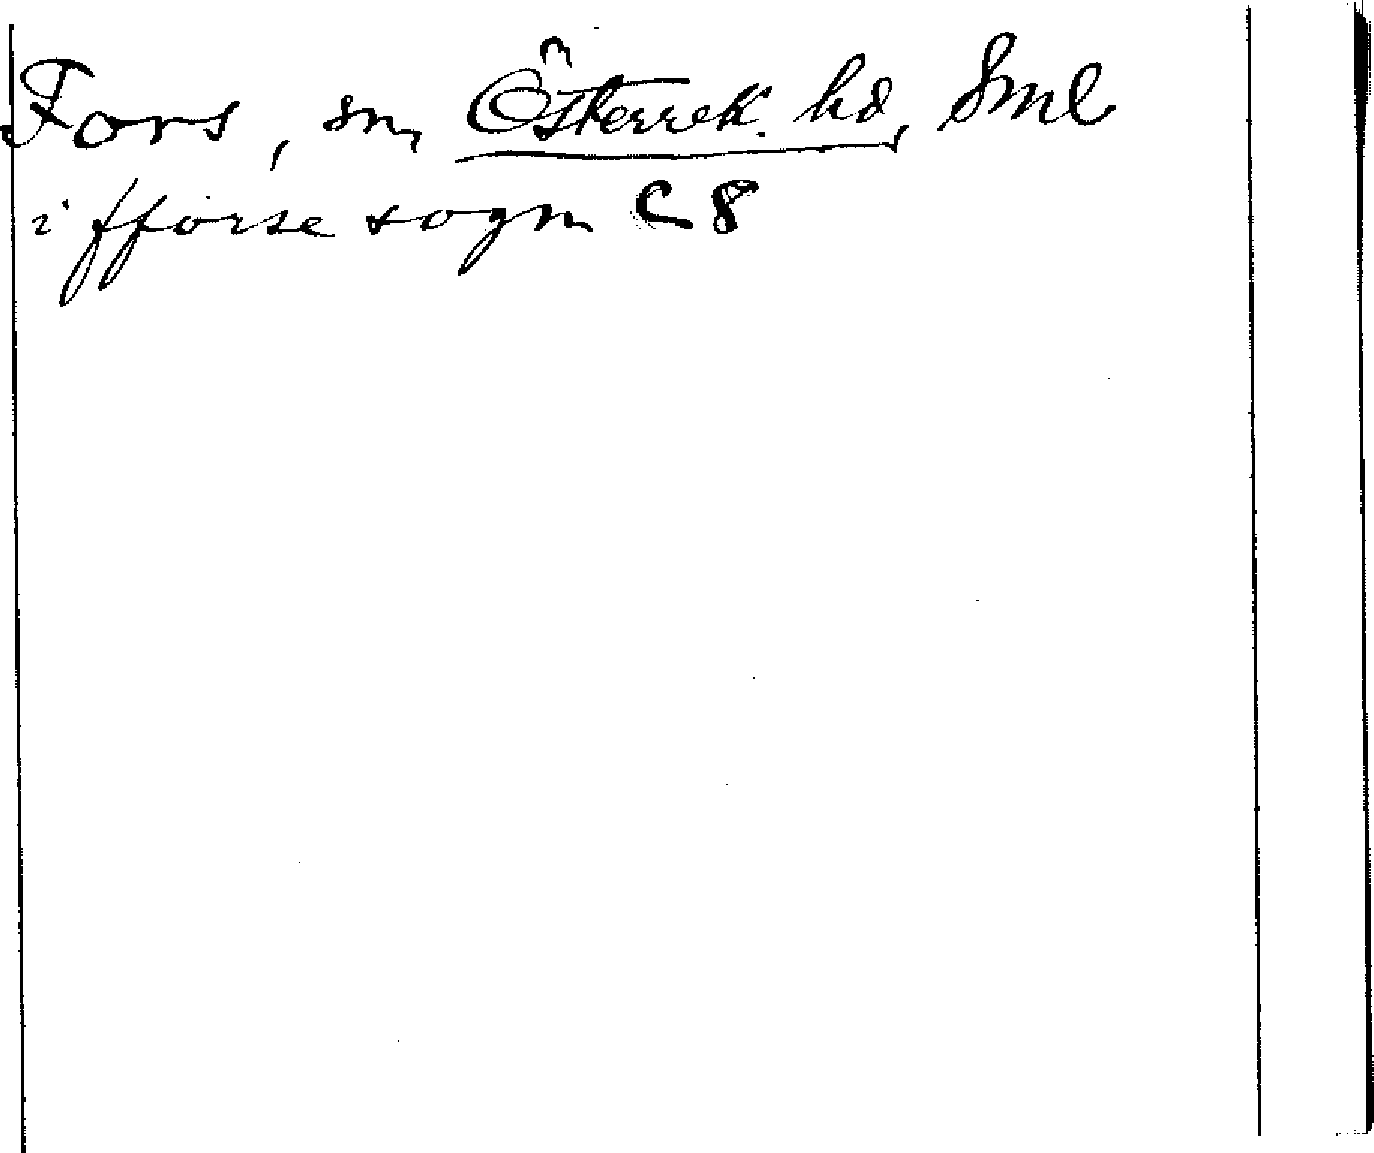 Fors, sn, Österrek. hd, Sml
i fförse sogn C 8